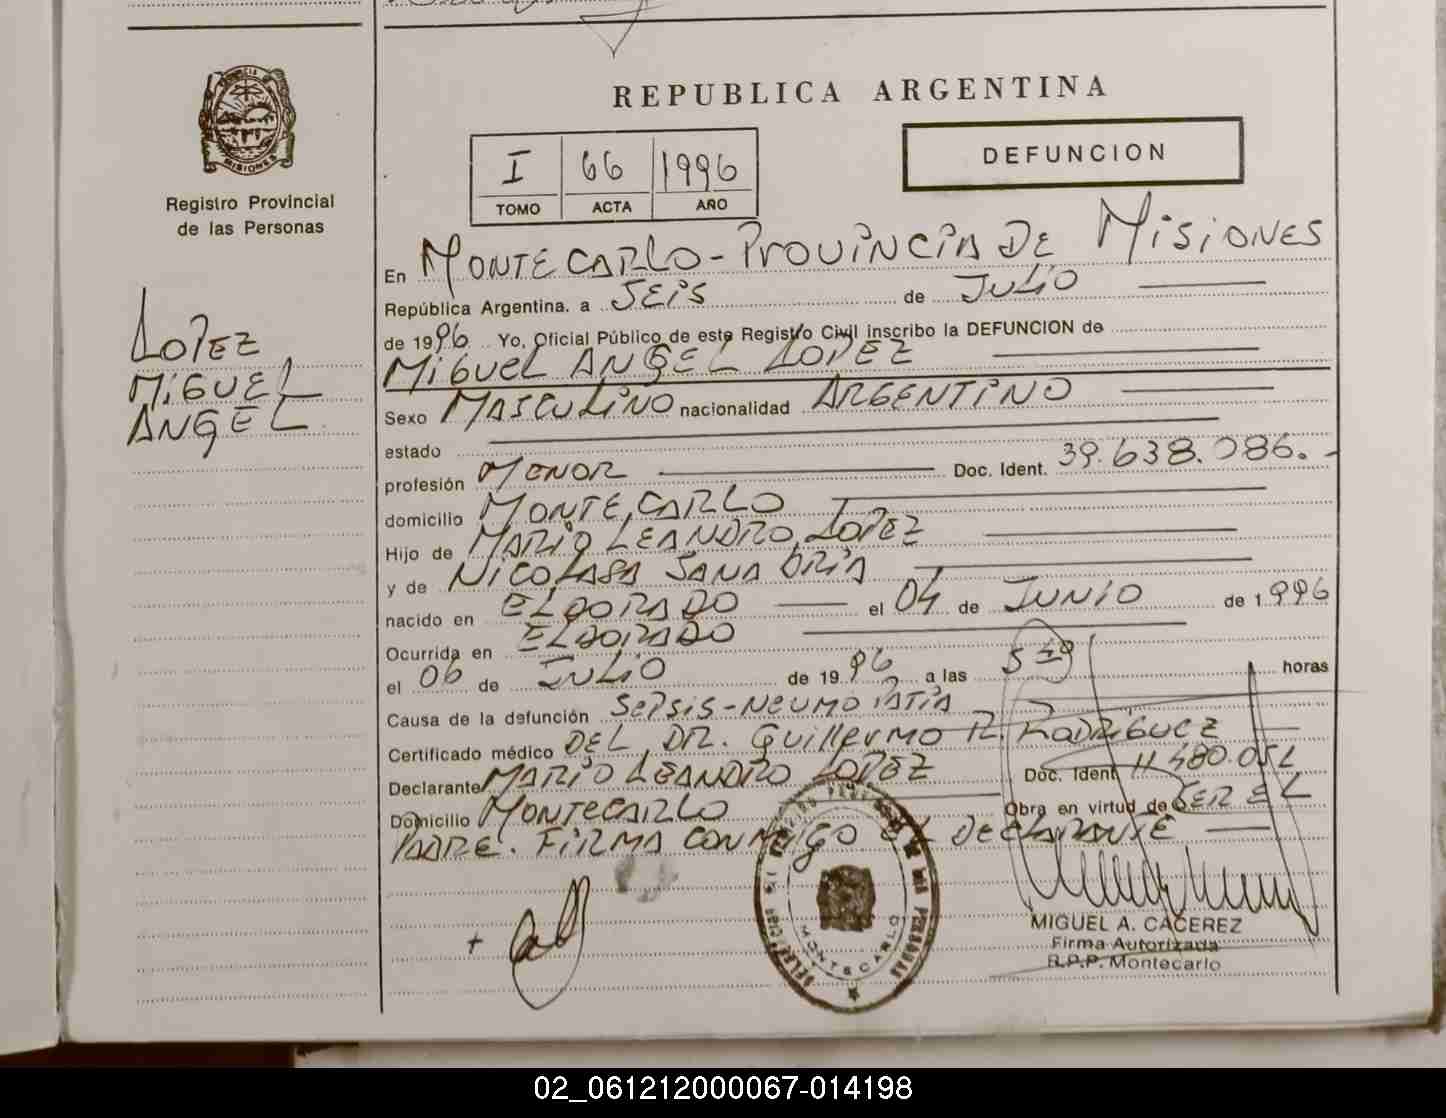 REPUBLICA ARGENTINA
PROVINCIA DE
MISIONES
Registro Provincial
de las Personas
I 66 1996
TOMO ACTA AÑO
DEFUNCION
LOPEZ
MIGUEL
ANGEL
En MONTECARLO - PROVINCIA DE MISIONES
República Argentina, a SEIS de JULIO
de 1996 Yo, Oficial Público de este Registro Civil inscribo la DEFUNCION de
MIGUEL ANGEL LOPEZ
Sexo MASCULINO nacionalidad ARGENTINO
estado
profesión MENOR Doc. Ident. 39.638.086.-
domicilio MONTECARLO
Hijo de MARIO LEANDRO LOPEZ
y de NICOLASA SANABRIA
nacido en ELDORADO el 04 de JUNIO de 1996
Ocurrida en ELDORADO
el 06 de JULIO de 1996 a las horas
Causa de la defunción SEPSIS-NEUMOPATIA
Certificado médico DEL DR. GUILLERMO R. RODRIGUEZ
Declarante MARIO LEANDRO LOPEZ Doc. Ident. 11.480.052
Domicilio MONTECARLO Obra en virtud de SER EL
PADRE. FIRMA CONMIGO EL DECLARANTE
MONTECARLO
MIGUEL A. CACEREZ
Firma Autorizada
R.P.P. Montecarlo
02_061212000067-014198